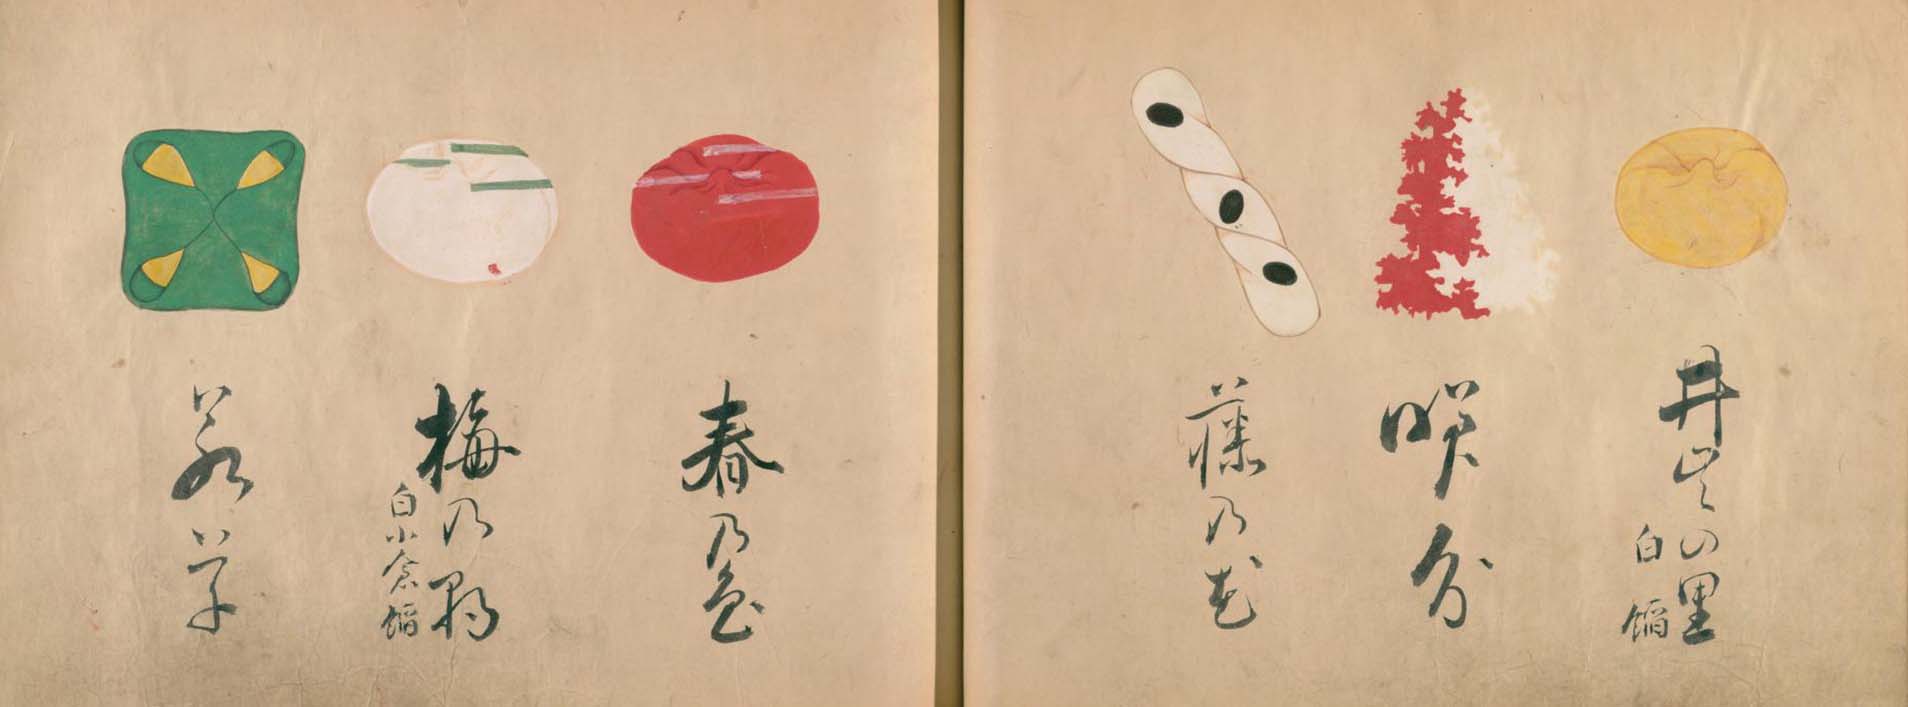 井出の里
白餡
咲分
藤乃花
春乃色
梅乃羽
白小倉餡
若草